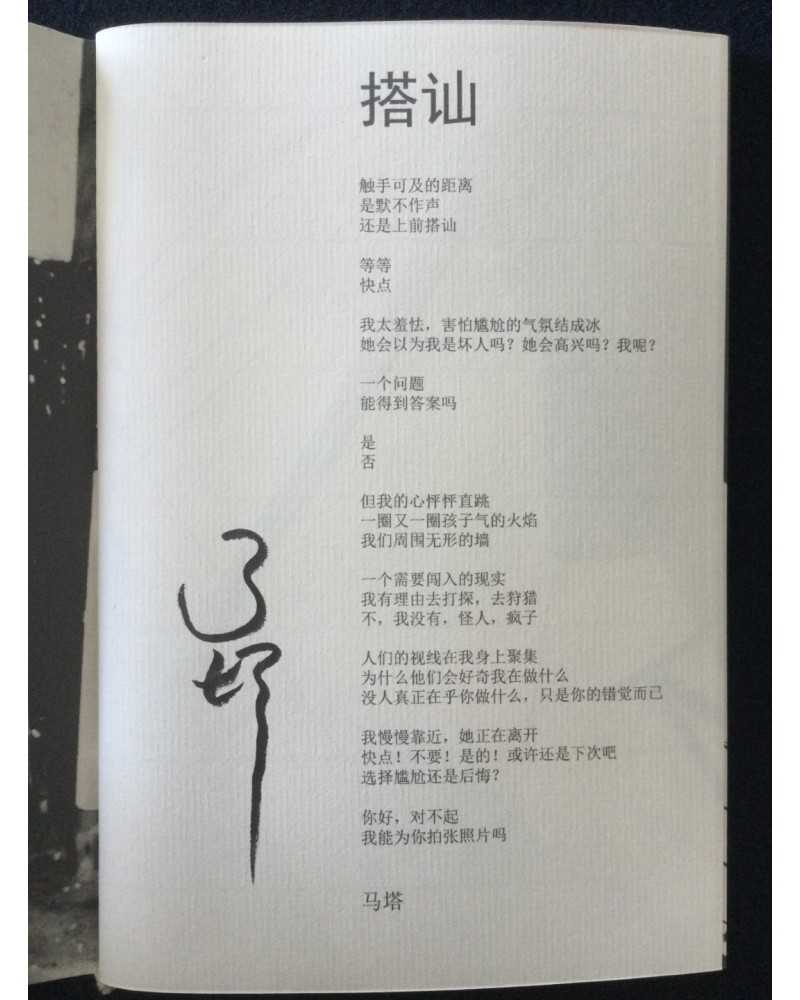 搭讪
触手可及的距离
是默不作声
还是上前搭讪
等等
快点
我太羞怯，害怕尴尬的气氛结成冰
她会以为我是坏人吗？她会高兴吗？我呢？
一个问题
能得到答案吗
是
否
但我的心怦怦直跳
一圈又一圈孩子气的火焰
我们周围无形的墙
一个需要闯入的现实
我有理由去打探，去狩猎
不，我没有，怪人，疯子
人们的视线在我身上聚集
为什么他们会好奇我在做什么
没人真正在乎你做什么，只是你的错觉而已
我慢慢靠近，她正在离开
快点！不要！是的！或许还是下次吧
选择尴尬还是后悔？
你好，对不起
我能为你拍张照片吗
马塔